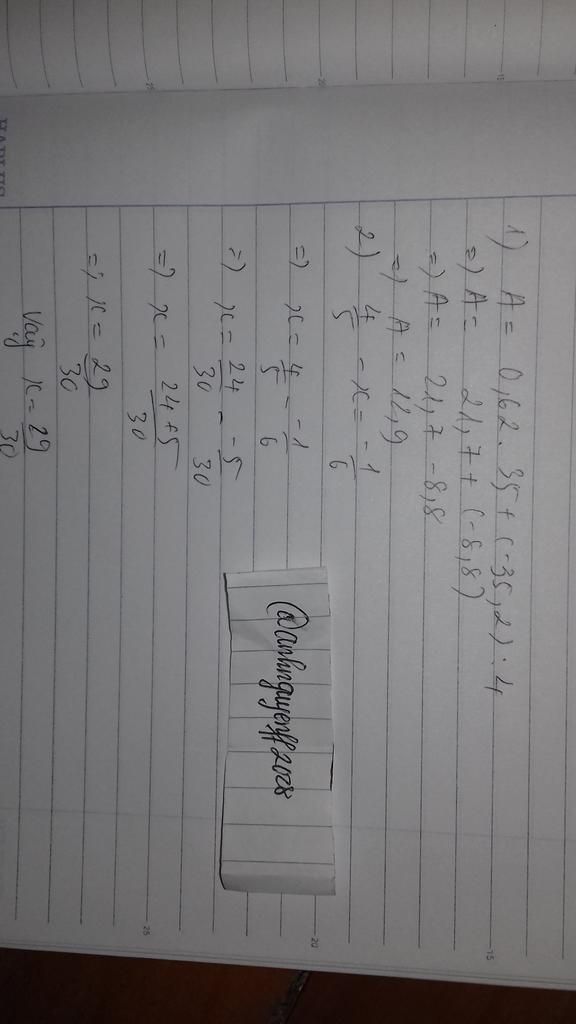 1) A = 0,62 . 35 + (-35,2) : 4
=) A = 21,7 + (-8,8)
=) A = 21,7 - 8,8
=) A = 12,9
2) 4/5 - x = -1/6
=) x = 4/5 - -1/6
=) x = 24/30 - -5/30
=) x = 24+5/30
=) x = 29/30
Vậy x = 29/30
@anhnguyenff2028
15
20
25
15
20
25